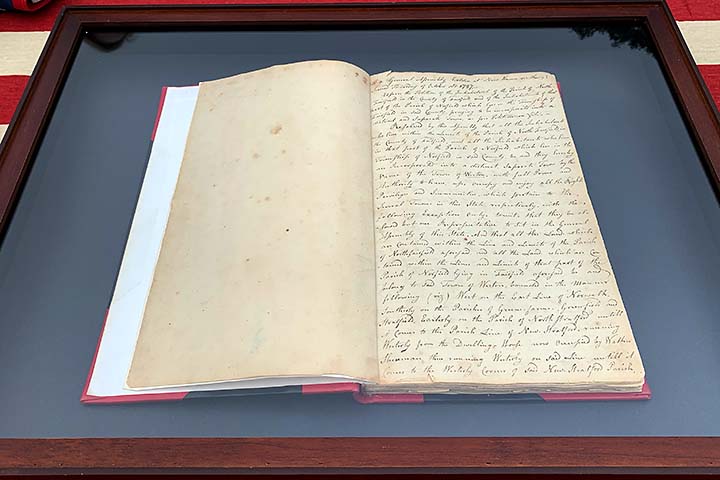 At a General Assembly holden at New Haven on the
Second Thursday of October AD 1787
Upon the Petition of the Inhabitants of the Parish of North
Fairfield in the County of Fairfield and of the Inhabitants of that
part of the Parish of Norfield which lye in the Township of
Fairfield in Sd County praying to be incorporated into a
distinct and Seperate Town as per Petition on file
Resolved by this Assembly that all the Inhabitants
living within the Limits of the Parish of North Fairfield in
the County of Fairfield and all the Inhabitants living
in that part of the Parish of Norfield which lies in the
Township of Fairfield in Sad County be and they hereby
are Incorporated into a distinct Seperate Town by the
Name of the Town of Weston, with full Power and
Authority to have use occupy and enjoy all the Rights
Privileges and Immunities which pertain to the
Several Towns in this State respectively, with the
following Exception Only, (viz) that they be al
lowed but one Representative to sit in the General
Assembly of this State, And that all the Land which
are contained within the Line and Limits of the Parish
of Northfairfield aforesd and all the Land which are Con
tained within the Lines and Limits of that part of the
Parish of Norfield lying in Fairfield aforesd be and
belong to Sad Town of Weston, bounded in the Manner
following (viz) West on the East Line of Norwalk
Southerly on the Parishes of Greens farms, Greenfield and
Stratfield, Easterly on the Parish of North Stratford untill
it Comes to the Parish Line of New Stratford, running
Westerly from the Dwelling House now occupied by
Sherman, then running Westerly on Sad Line untill it
Comes to the Westerly Corner of Sad New Stratford Parish